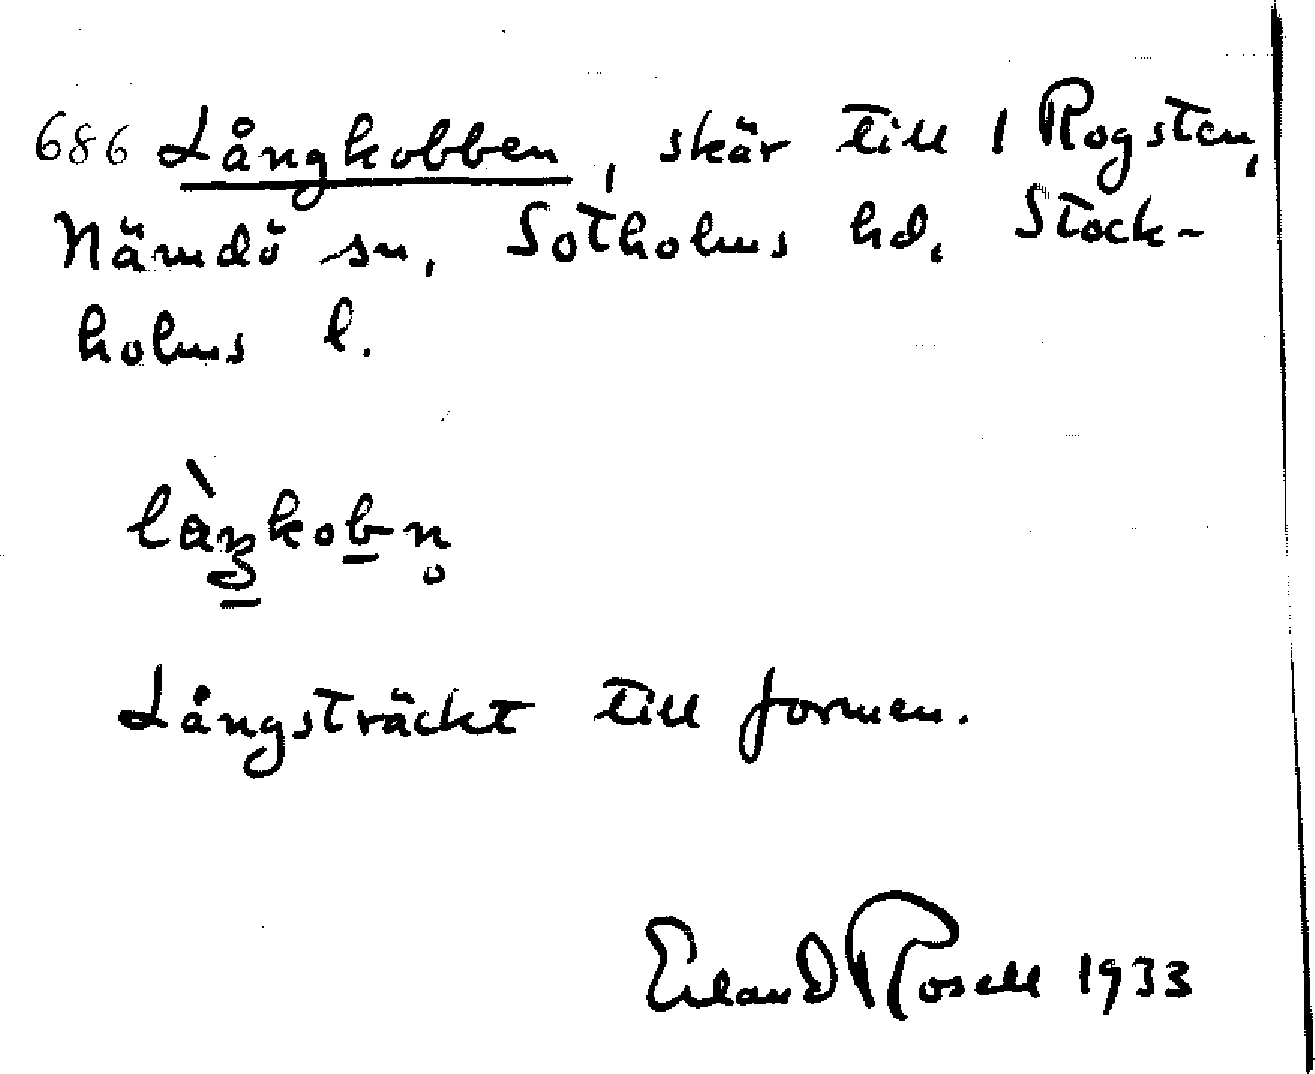 686 Långkobben, skär till 1 Rogsten,
Nämdö sn, Sotholms hd, Stock-
holms l.
Långsträckt till formen.
Erland Rosell 1933